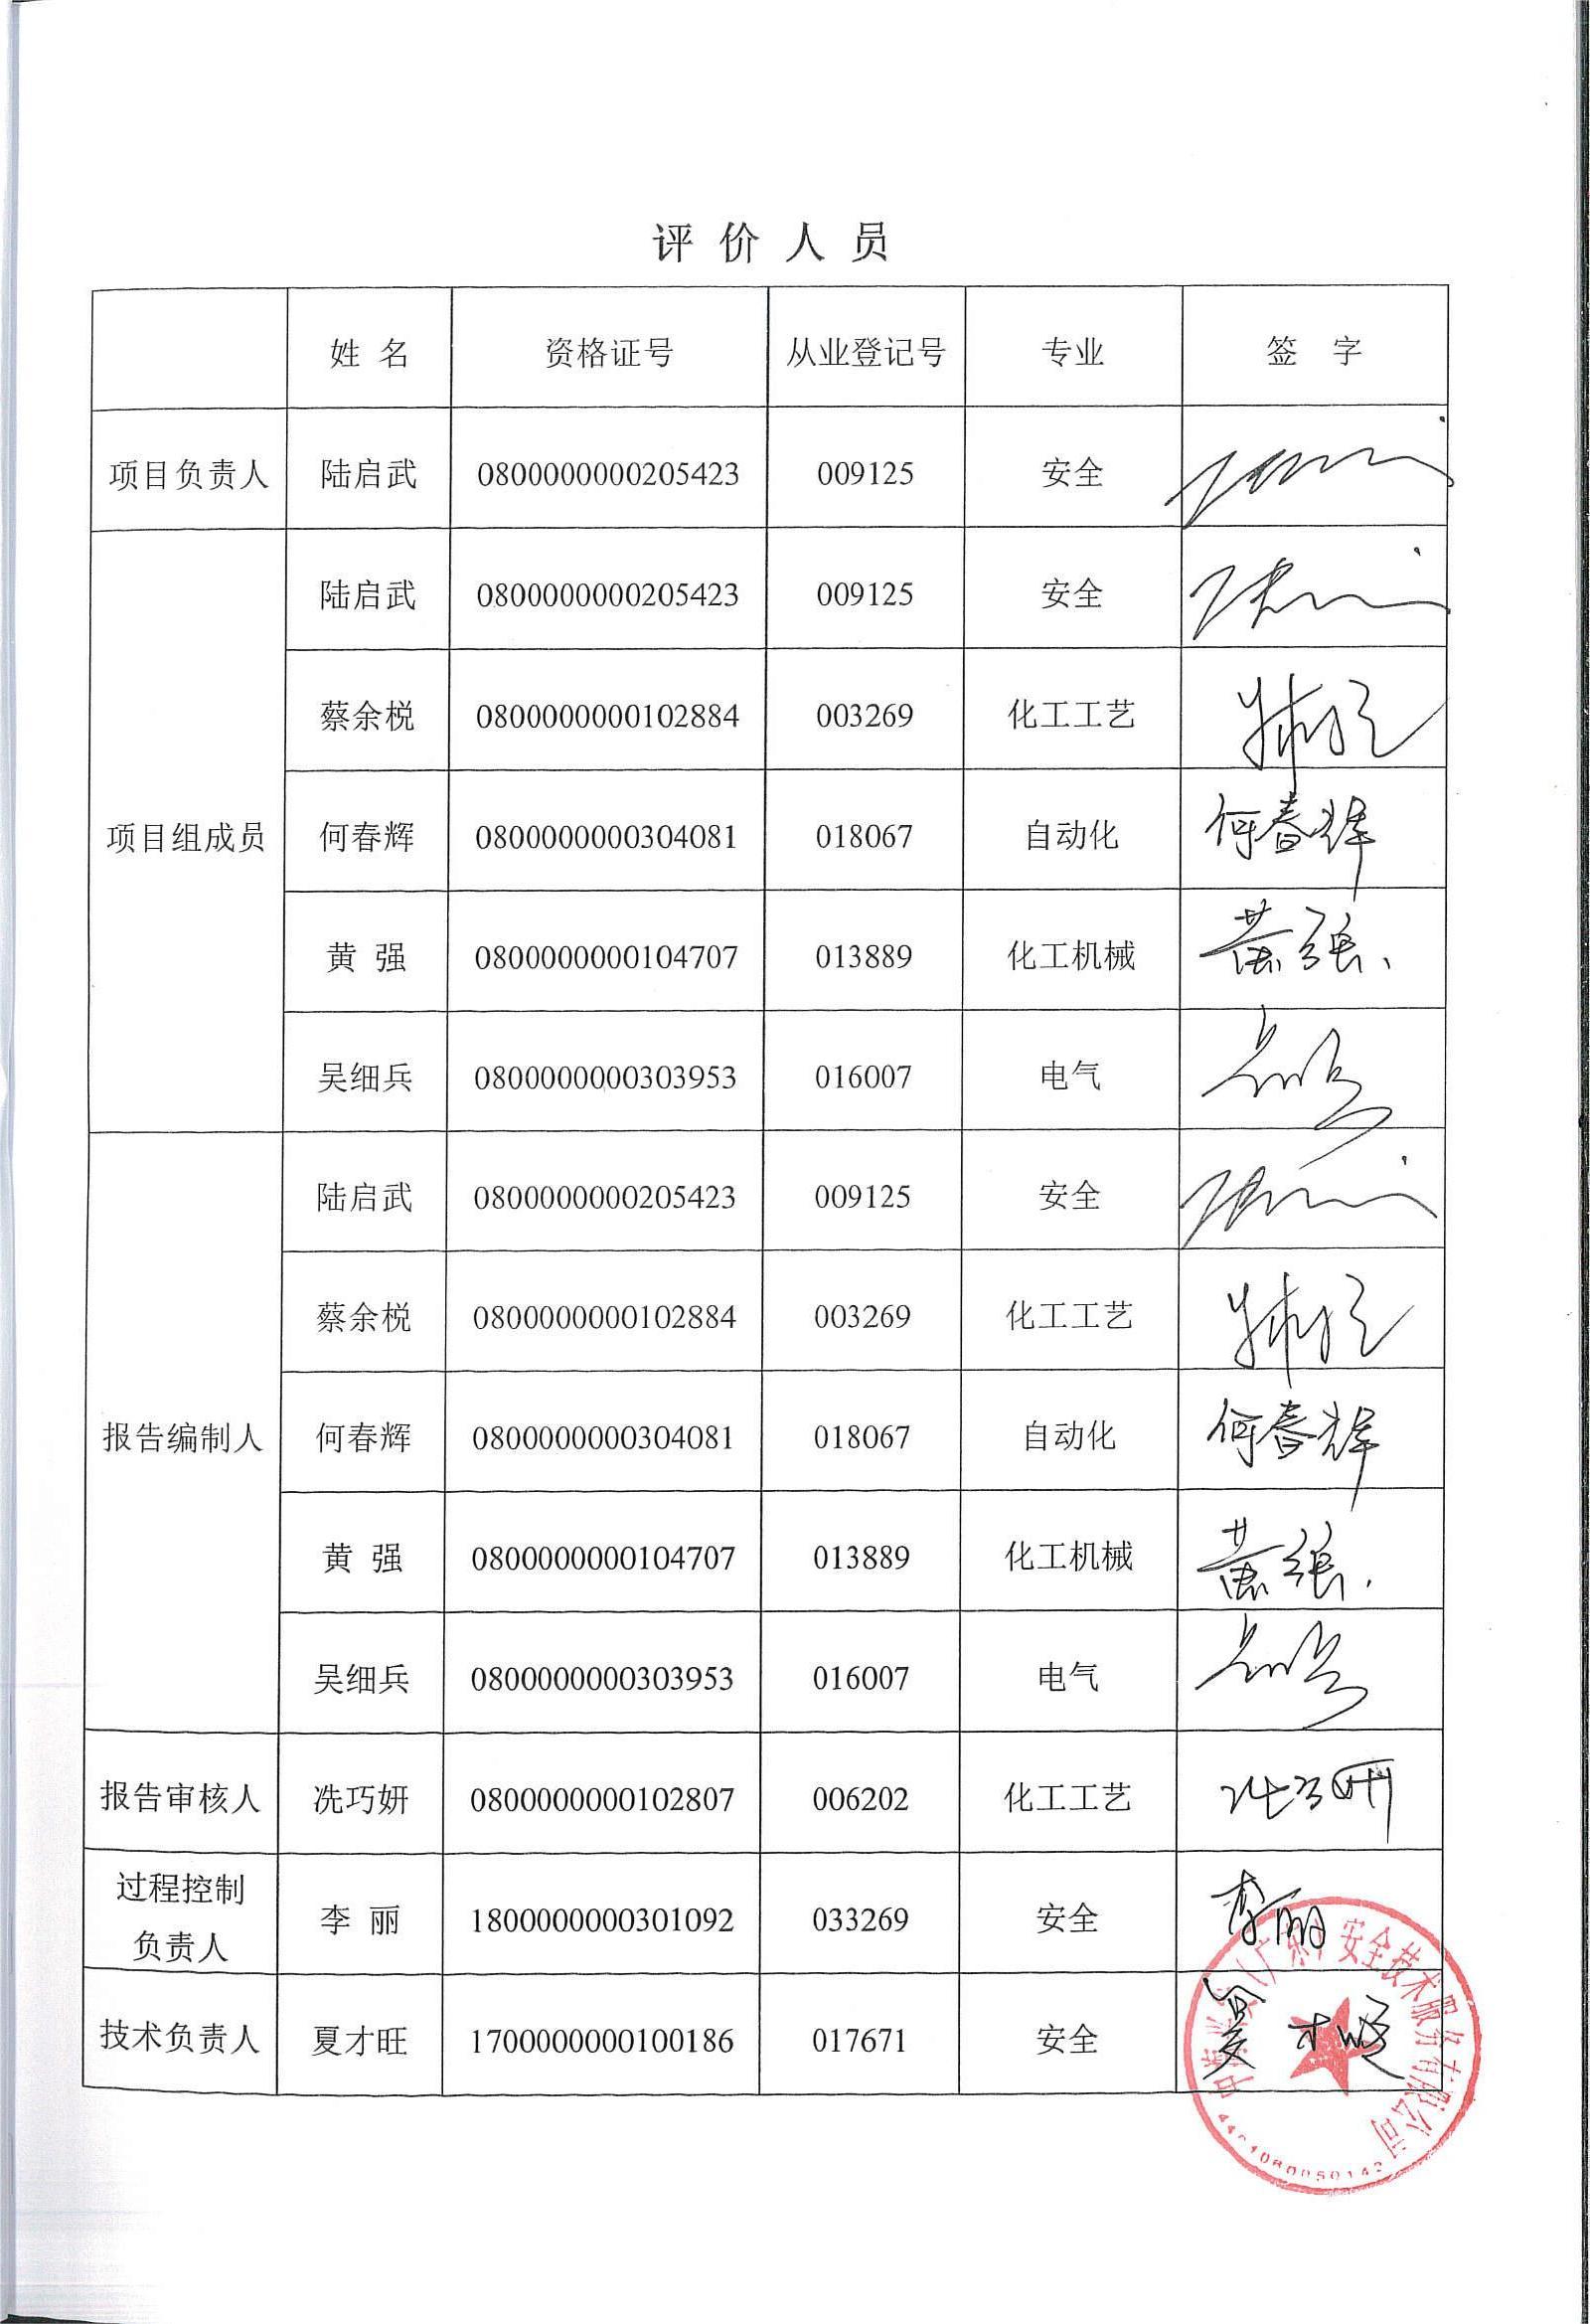 评价人员
姓 名 资格证号 从业登记号 专业 签 字
项目负责人 陆启武 0800000000205423 009125 安全
项目组成员
陆启武 0800000000205423 009125 安全
蔡余棁 0800000000102884 003269 化工工艺
何春辉 0800000000304081 018067 自动化 何春辉
黄 强 0800000000104707 013889 化工机械 黄强
吴细兵 0800000000303953 016007 电气
报告编制人
陆启武 0800000000205423 009125 安全
蔡余棁 0800000000102884 003269 化工工艺
何春辉 0800000000304081 018067 自动化 何春辉
黄 强 0800000000104707 013889 化工机械 黄强
吴细兵 0800000000303953 016007 电气
报告审核人 冼巧妍 0800000000102807 006202 化工工艺
过程控制
负责人 李 丽 1800000000301092 033269 安全 李丽
技术负责人 夏才旺 1700000000100186 017671 安全 夏才旺
(广东)安全技术服务有限公司